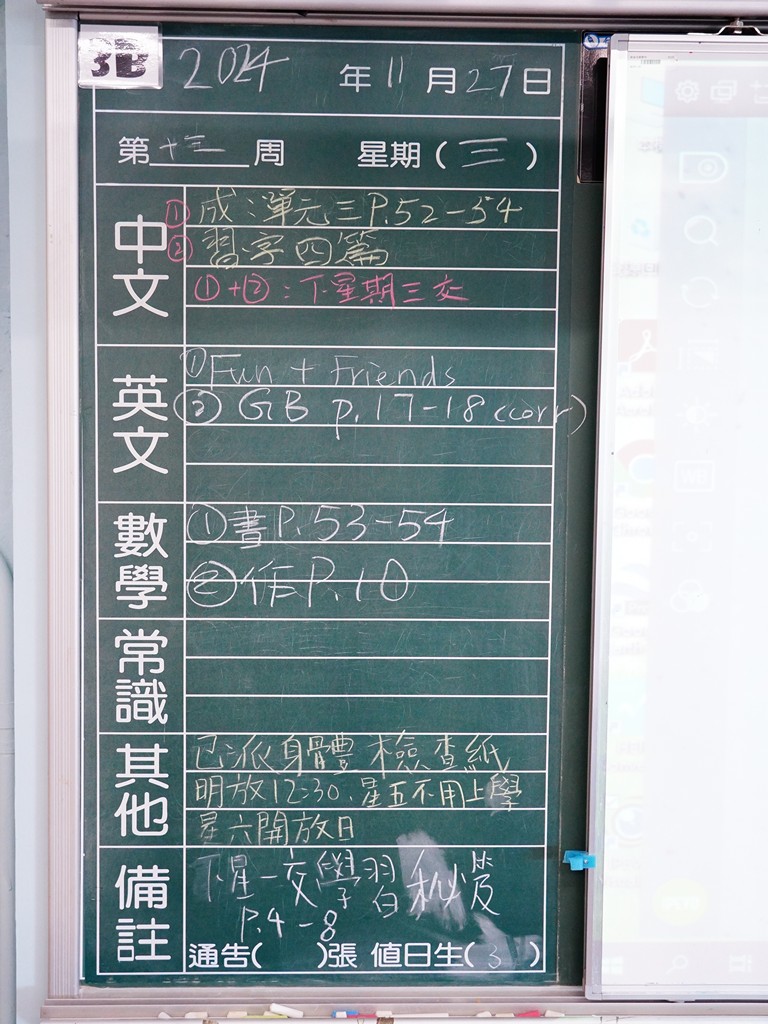 3B
2024年11月27日
第十三周 星期(三)
中文
①成:單元三P.52-54
②習字四篇
①+②:下星期三交
英文
①Fun + Friends
② GB p.17-18 (corr)
數學
①書P.53-54
②作P.10
常識
其他
已派身體檢查紙
明放12:30、星五不用上學
星六開放日
備註
下星一交學習秘笈
P.4-8
通告( )張 值日生(3)